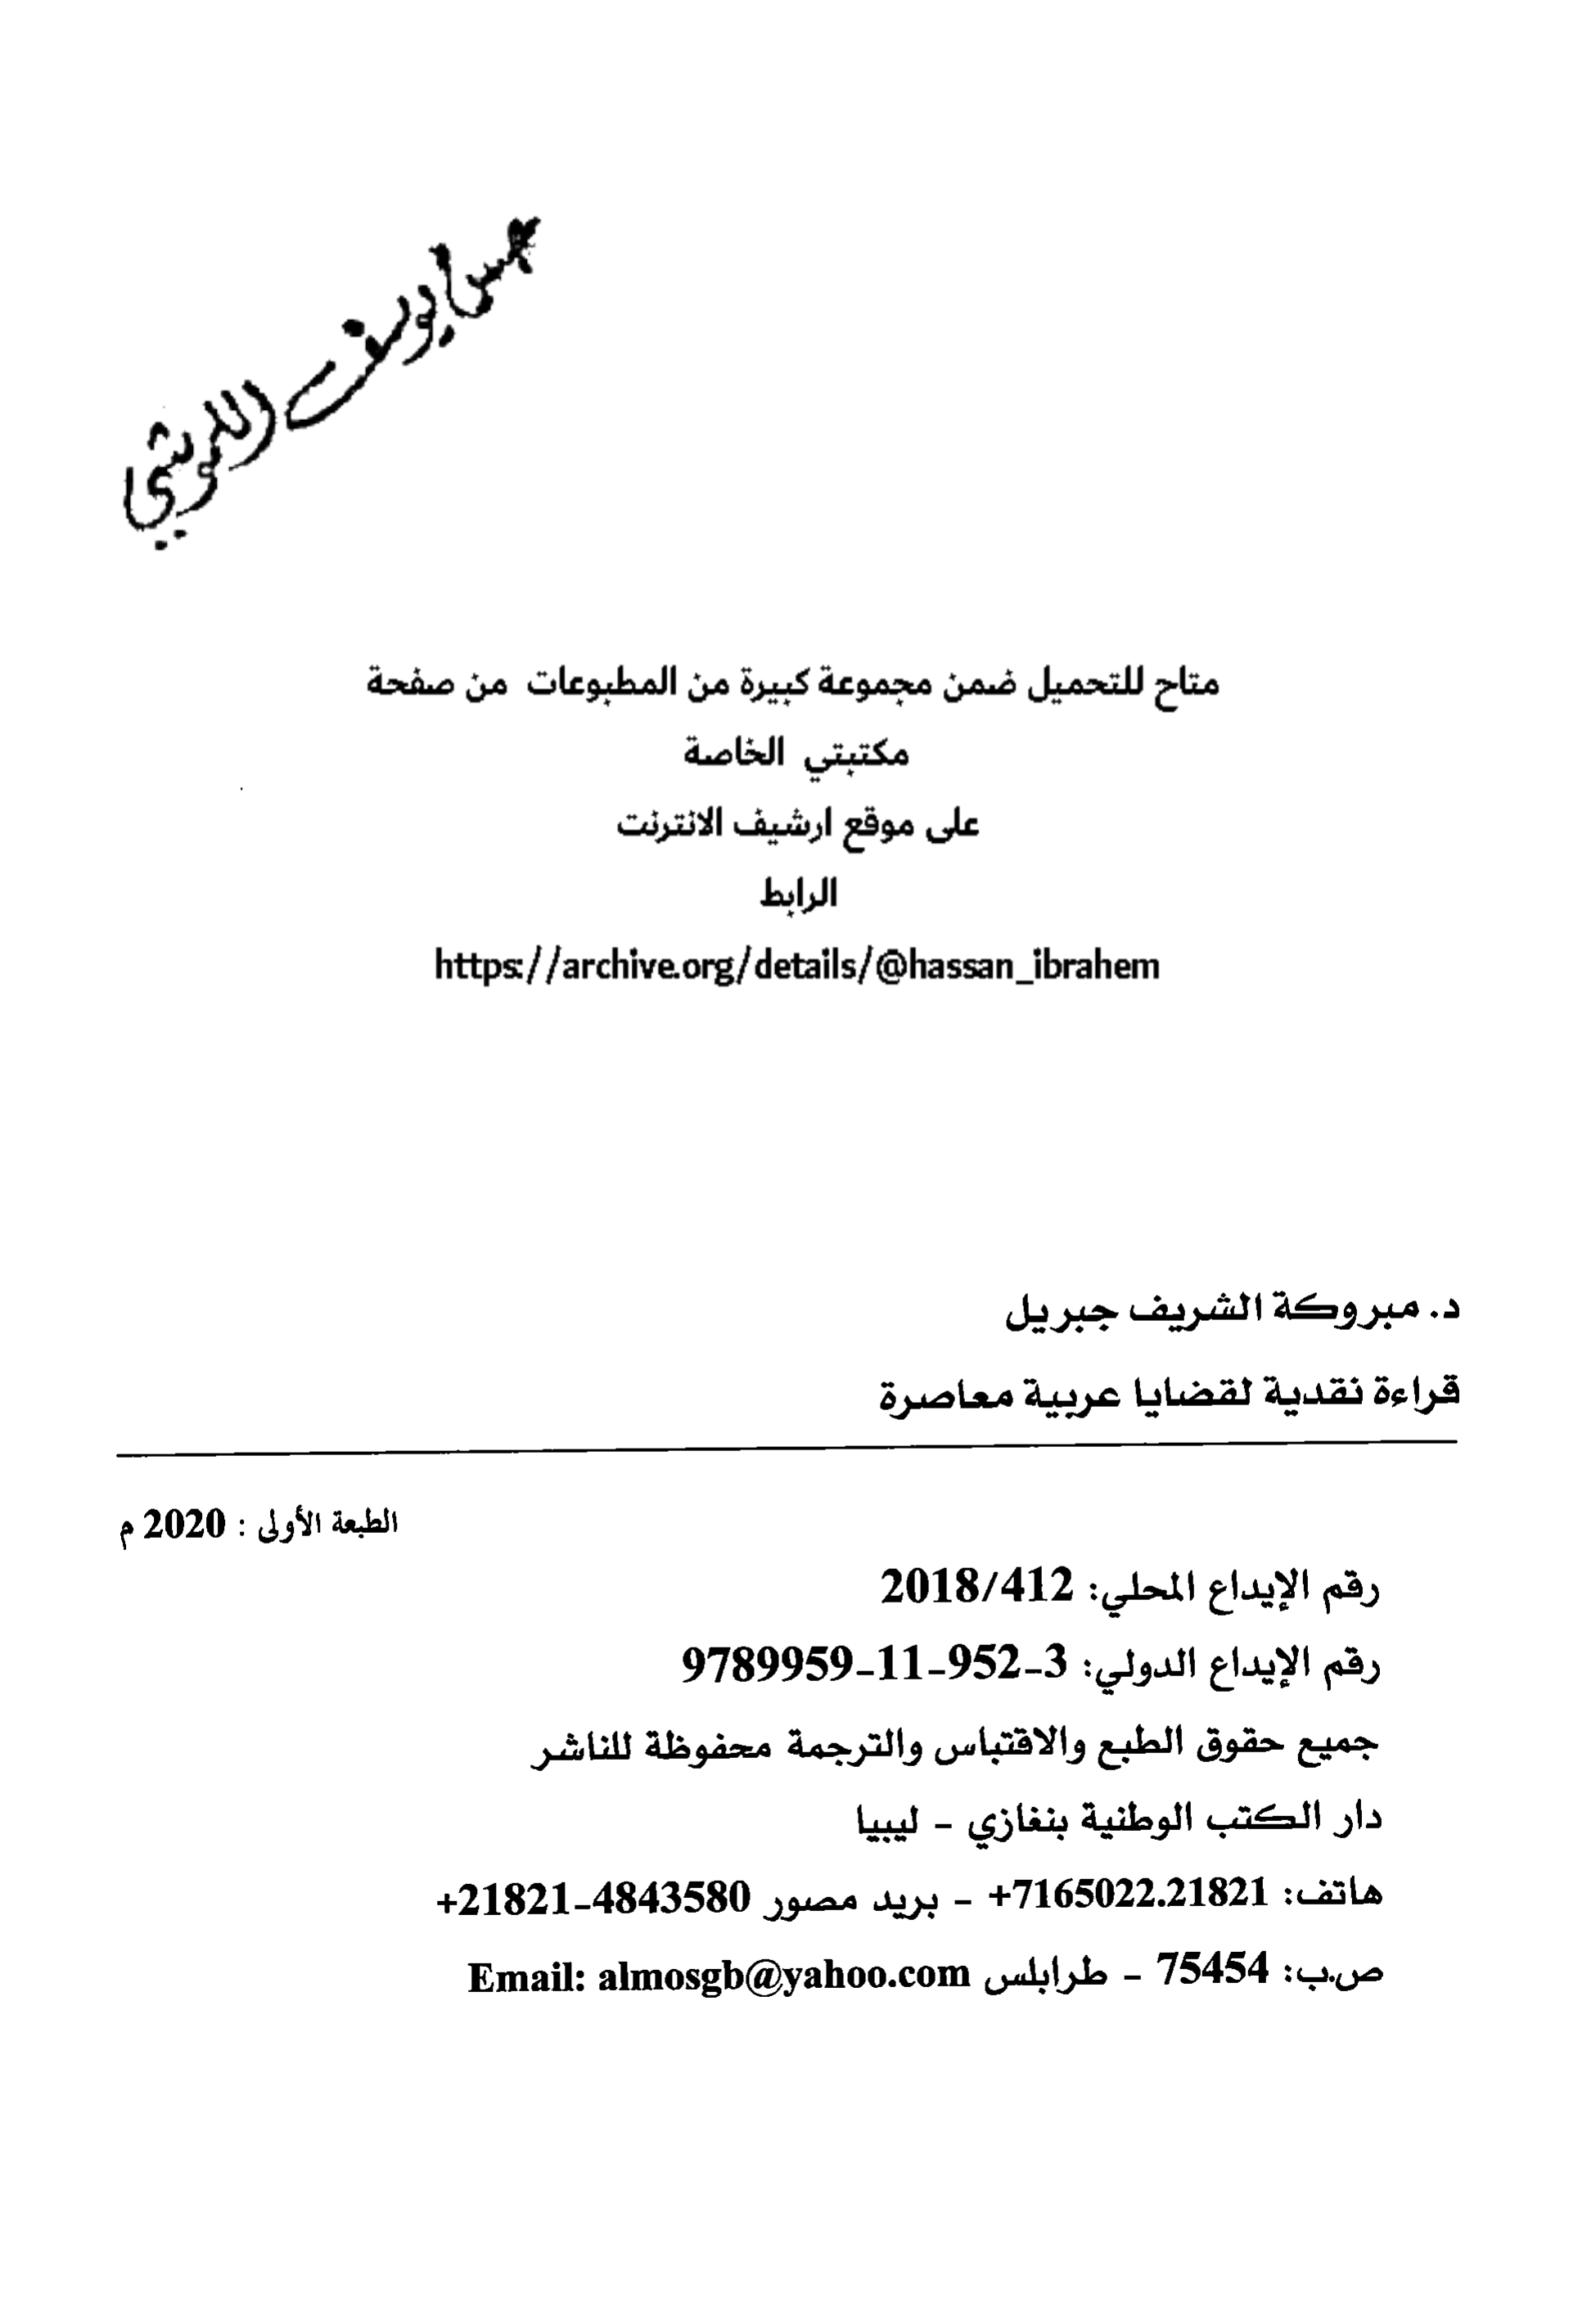 يوسف اللموشي
متاح للتحميل ضمن مجموعة كبيرة من المطبوعات من صفحة
مكتبتي الخاصة
على موقع ارشيف الانترنت
الرابط
https://archive.org/details/@hassan_ibrahem
د. مبروكة الشريف جبريل
قراءة نقدية لقضايا عربية معاصرة
الطبعة الأولى : 2020 م
رقم الإيداع المحلي: 2018/412
رقم الإيداع الدولي: 3-952-11-9789959
جميع حقوق الطبع والاقتباس والترجمة محفوظة للناشر
دار الكتب الوطنية بنغازي - ليبيا
هاتف: 7165022.21821+ - بريد مصور 4843580-21821+
ص.ب: 75454 - طرابلس Email: almosgb@yahoo.com